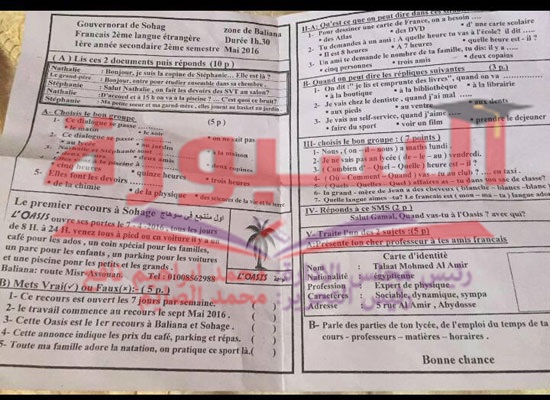 Gouvernorat de Sohag zone de Baliana
Francais 2ème langue étrangère Durée 1h.30
1ère année secondaire 2ème semestre Mai 2016
( A ) Lis ces 2 documents puis réponds (10 p )
Nathalie : Bonjour, je suis la copine de Stéphanie... Elle est là ?
Le grand-père : Bonjour, entre pour étudier ensemble dans sa chambre.
Nathalie : Salut Nathalie, on fait les devoirs des SVT au salon?
Nathalie : D'accord et à 15 h on va à la piscine? ... C'est quoi ce bruit?
Stéphanie : Ma petite soeur et ma grand-mère, elles jouent au basket en jardin
A- Choisis le bon groupe (5 p )
1- Ce dialogue se passe
• le matin • le soir • on ne sait pas
2- Ce dialogue se passe au
• au lycée
• deux amies • deux copains
piscine à
• cinq heures • quinze heures • trois heures
5- Elles font les devoirs
• de la chimie • de la physique • des sciences de la vie et la terre
Le premier recours à Sohage اول منتجع في سوهاج
L'OASIS ouvre ses portes le 2016, tous les jours
de 8 H. à 24 H. venez tous à pied ou en voiture il y a un
café pour les ados, un coin spécial pour les familles,
un parc pour les enfants, un parking pour les voitures
et une piscine pour les petits et les grands.
Baliana: route Misr Assouan Tel : 01008562988 L'OASIS
B) Mets Vrai(✓) ou Faux(×):- ( 5 p.)
1- Ce recours est ouvert les 7 jours par semaine. ( )
2- le travail commence au recours le sept Mai 2016. ( )
3- Cette Oasis est le 1er recours à Baliana et Sohage. ( )
4- Cette annonce indique les prix du café, parking et répas. ( )
5- Toute ma famille adore la natation, on pratique ce sport là.( )
II-A: Qu'est ce que on peut dire dans
1- Pour dessiner une carte de France, on a besoin ....
• des Atlas • des DVD • d' une carte scolaire
2- Tu demandes à un ami : A quelle heure tu vas à l'école? il dit ....
• Il est 8 heures • A 7 heures • quelle heure est - il ?
3- Un ami te demande le nombre de ta famille, tu dis: il y a ....
• cinq personnes • trois amis • deux copains
B- Quand on peut dire les répliques suivantes (3 p.)
1- On dit :" je lis et emprunte des livres" , quand on va
• à la boutique • à la bibliothèque • à la librairie
2- Je vais chez le dentiste, quand j'ai mal
• aux pieds • au ventre • aux dents
3- Je vais au self-service, quand j'aime
• faire du sport • voir un film • prendre le dejeuner
III- choisis le bon groupe : ( 7 points )
1- Nous , ( on – il – nous ) a mardi lundi.
2- Je ne vais pas au lycée ( de – le – au ) vendredi.
3- ( Combien d' – Quel – Quelle ) heure est – il ?
4- ( Où – Comment – Quand ) vas – tu au club ? .... en taxi .
5- ( Quels – Quelles – Quel ) affaires as – tu dans ta salle de classe?
6- la grand - mère de Jean a des cheveux ( blanche – blanches – blancs )
7- Quelle langue aimes – tu? Le français est ( mon – ma – ta ) langue
IV- Réponds à ce SMS (2 p )
Salut Gamal, Quand vas-tu à l'Oasis ? avec qui?
V- Traite l'un des 2 sujets :(5 p )
A- Présente ton cher professeur à tes amis français
Carte d'identité
Nom : Talaat Mohamed Al Amir
Nationalité : égyptienne
Profession : Expert de physique
Caractères : Sociable, dynamique, sympa
Adresse : 5 rue Al Amir , Abydosse
B- Parle des parties de ton lycée, de l'emploi du temps de ta
cours - professeurs – matières – horaires .
Bonne chance